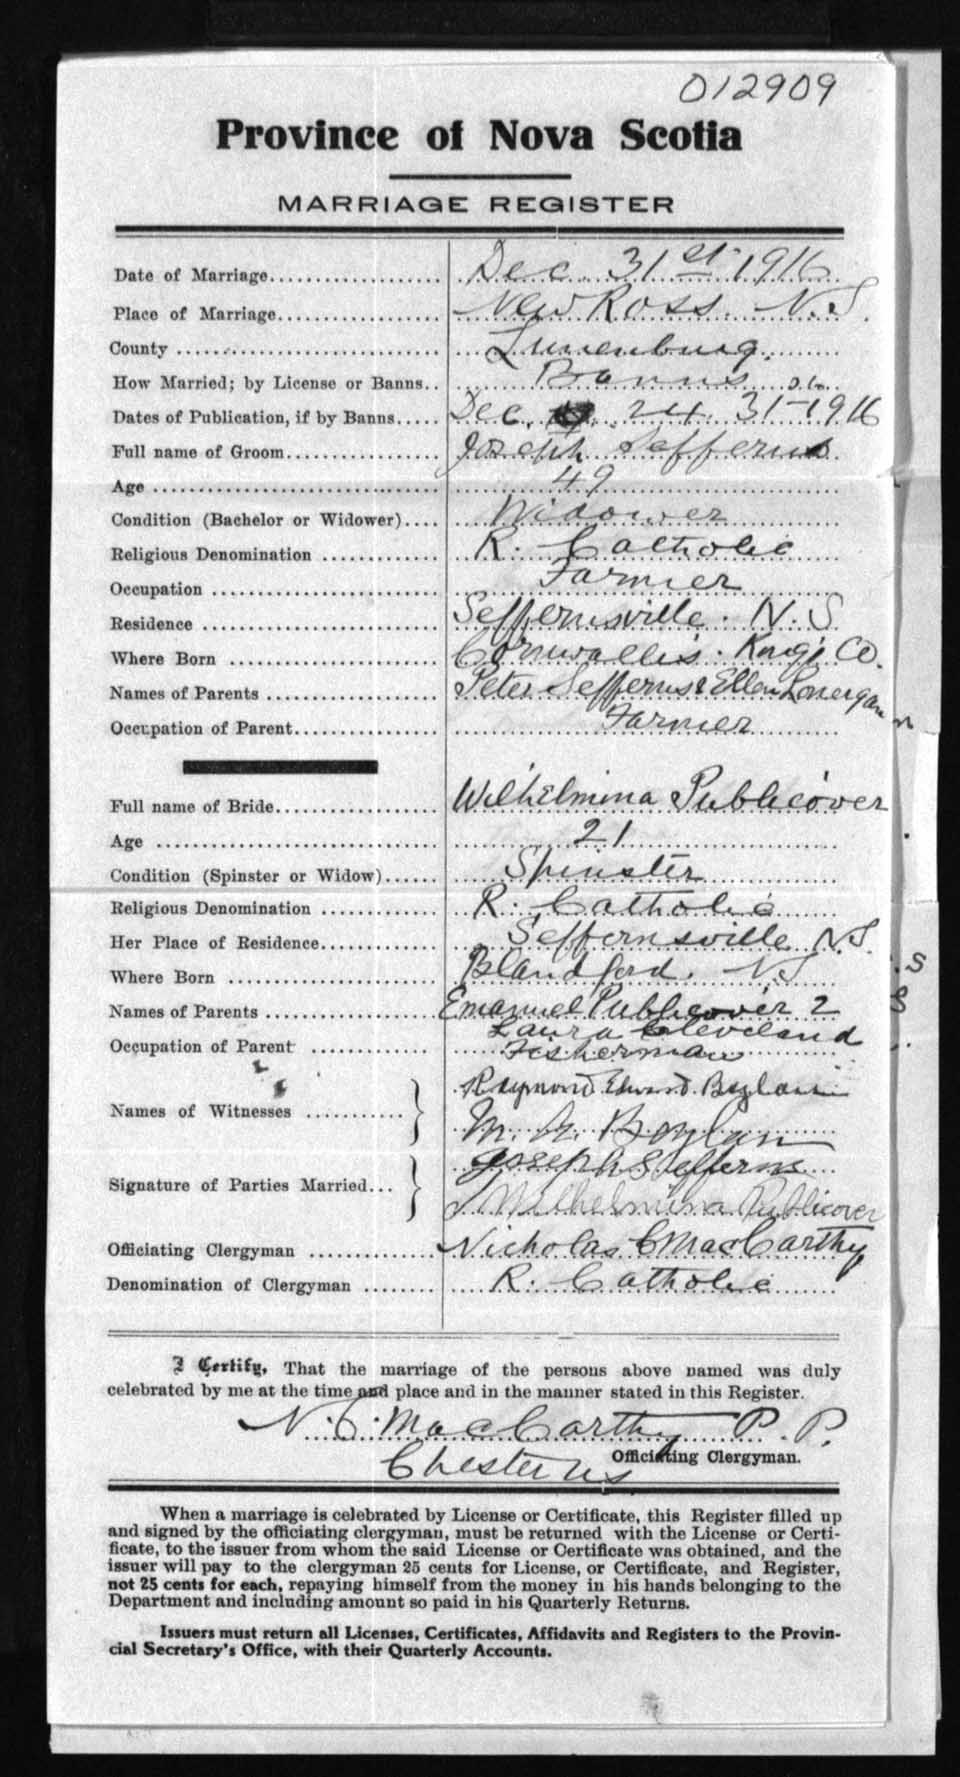 012909
Province of Nova Scotia
MARRIAGE REGISTER
Date of Marriage Dec. 31st 1916
Place of Marriage New Ross. N.S.
County Lunenburg.
How Married; by License or Banns Banns
Dates of Publication, if by Banns Dec. 24. 31-1916
Full name of Groom Joseph Sefferns
Age 49
Condition (Bachelor or Widower) Widower
Religious Denomination R. Catholic
Occupation Farmer
Residence Seffernsville. N.S
Where Born Cornwallis. Kings Co.
Names of Parents Peter Sefferns & Ellen Lonergan
Occupation of Parent Farmer
Full name of Bride Wilhelmina Publicover
Age 21
Condition (Spinster or Widow) Spinster
Religious Denomination R. Catholic
Her Place of Residence Seffernsville N.S.
Where Born Blandford. N S
Names of Parents Emanuel Publicover &
Laura Cleveland
Occupation of Parent Fisherman
Raymond Edward Boylan
Names of Witnesses
M. A. Boylan
Joseph Sefferns
Signature of Parties Married
Wilhelmina Publicover
Officiating Clergyman Nicholas C MacCarthy
Denomination of Clergyman R. Catholic
I Certify, That the marriage of the persons above named was duly
celebrated by me at the time and place and in the manner stated in this Register.
N. C. MacCarthy P. P.
Officiating Clergyman.
Chester NS
When a marriage is celebrated by License or Certificate, this Register filled up
and signed by the officiating clergyman, must be returned with the License or Certi-
ficate, to the issuer from whom the said License or Certificate was obtained, and the
issuer will pay to the clergyman 25 cents for License, or Certificate, and Register,
not 25 cents for each, repaying himself from the money in his hands belonging to the
Department and including amount so paid in his Quarterly Returns.
Issuers must return all Licenses, Certificates, Affidavits and Registers to the Provin-
cial Secretary's Office, with their Quarterly Accounts.